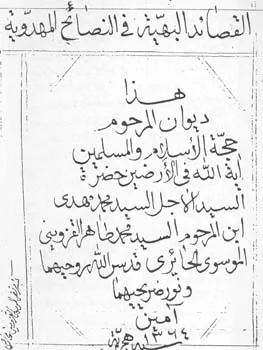 القصائد البهية في النصائح المهدوية
هذا
ديوان المرحوم
حجة الإسلام والمسلمين
آية الله في الأرضين حضرة
السيد الأجل السيد محمد مهدي
ابن المرحوم السيد محمد طاهر القزويني
الموسوي الحائري قدس الله روحيهما
ونور ضريحيهما
آمين
١٣٦٤
سنه هجرية